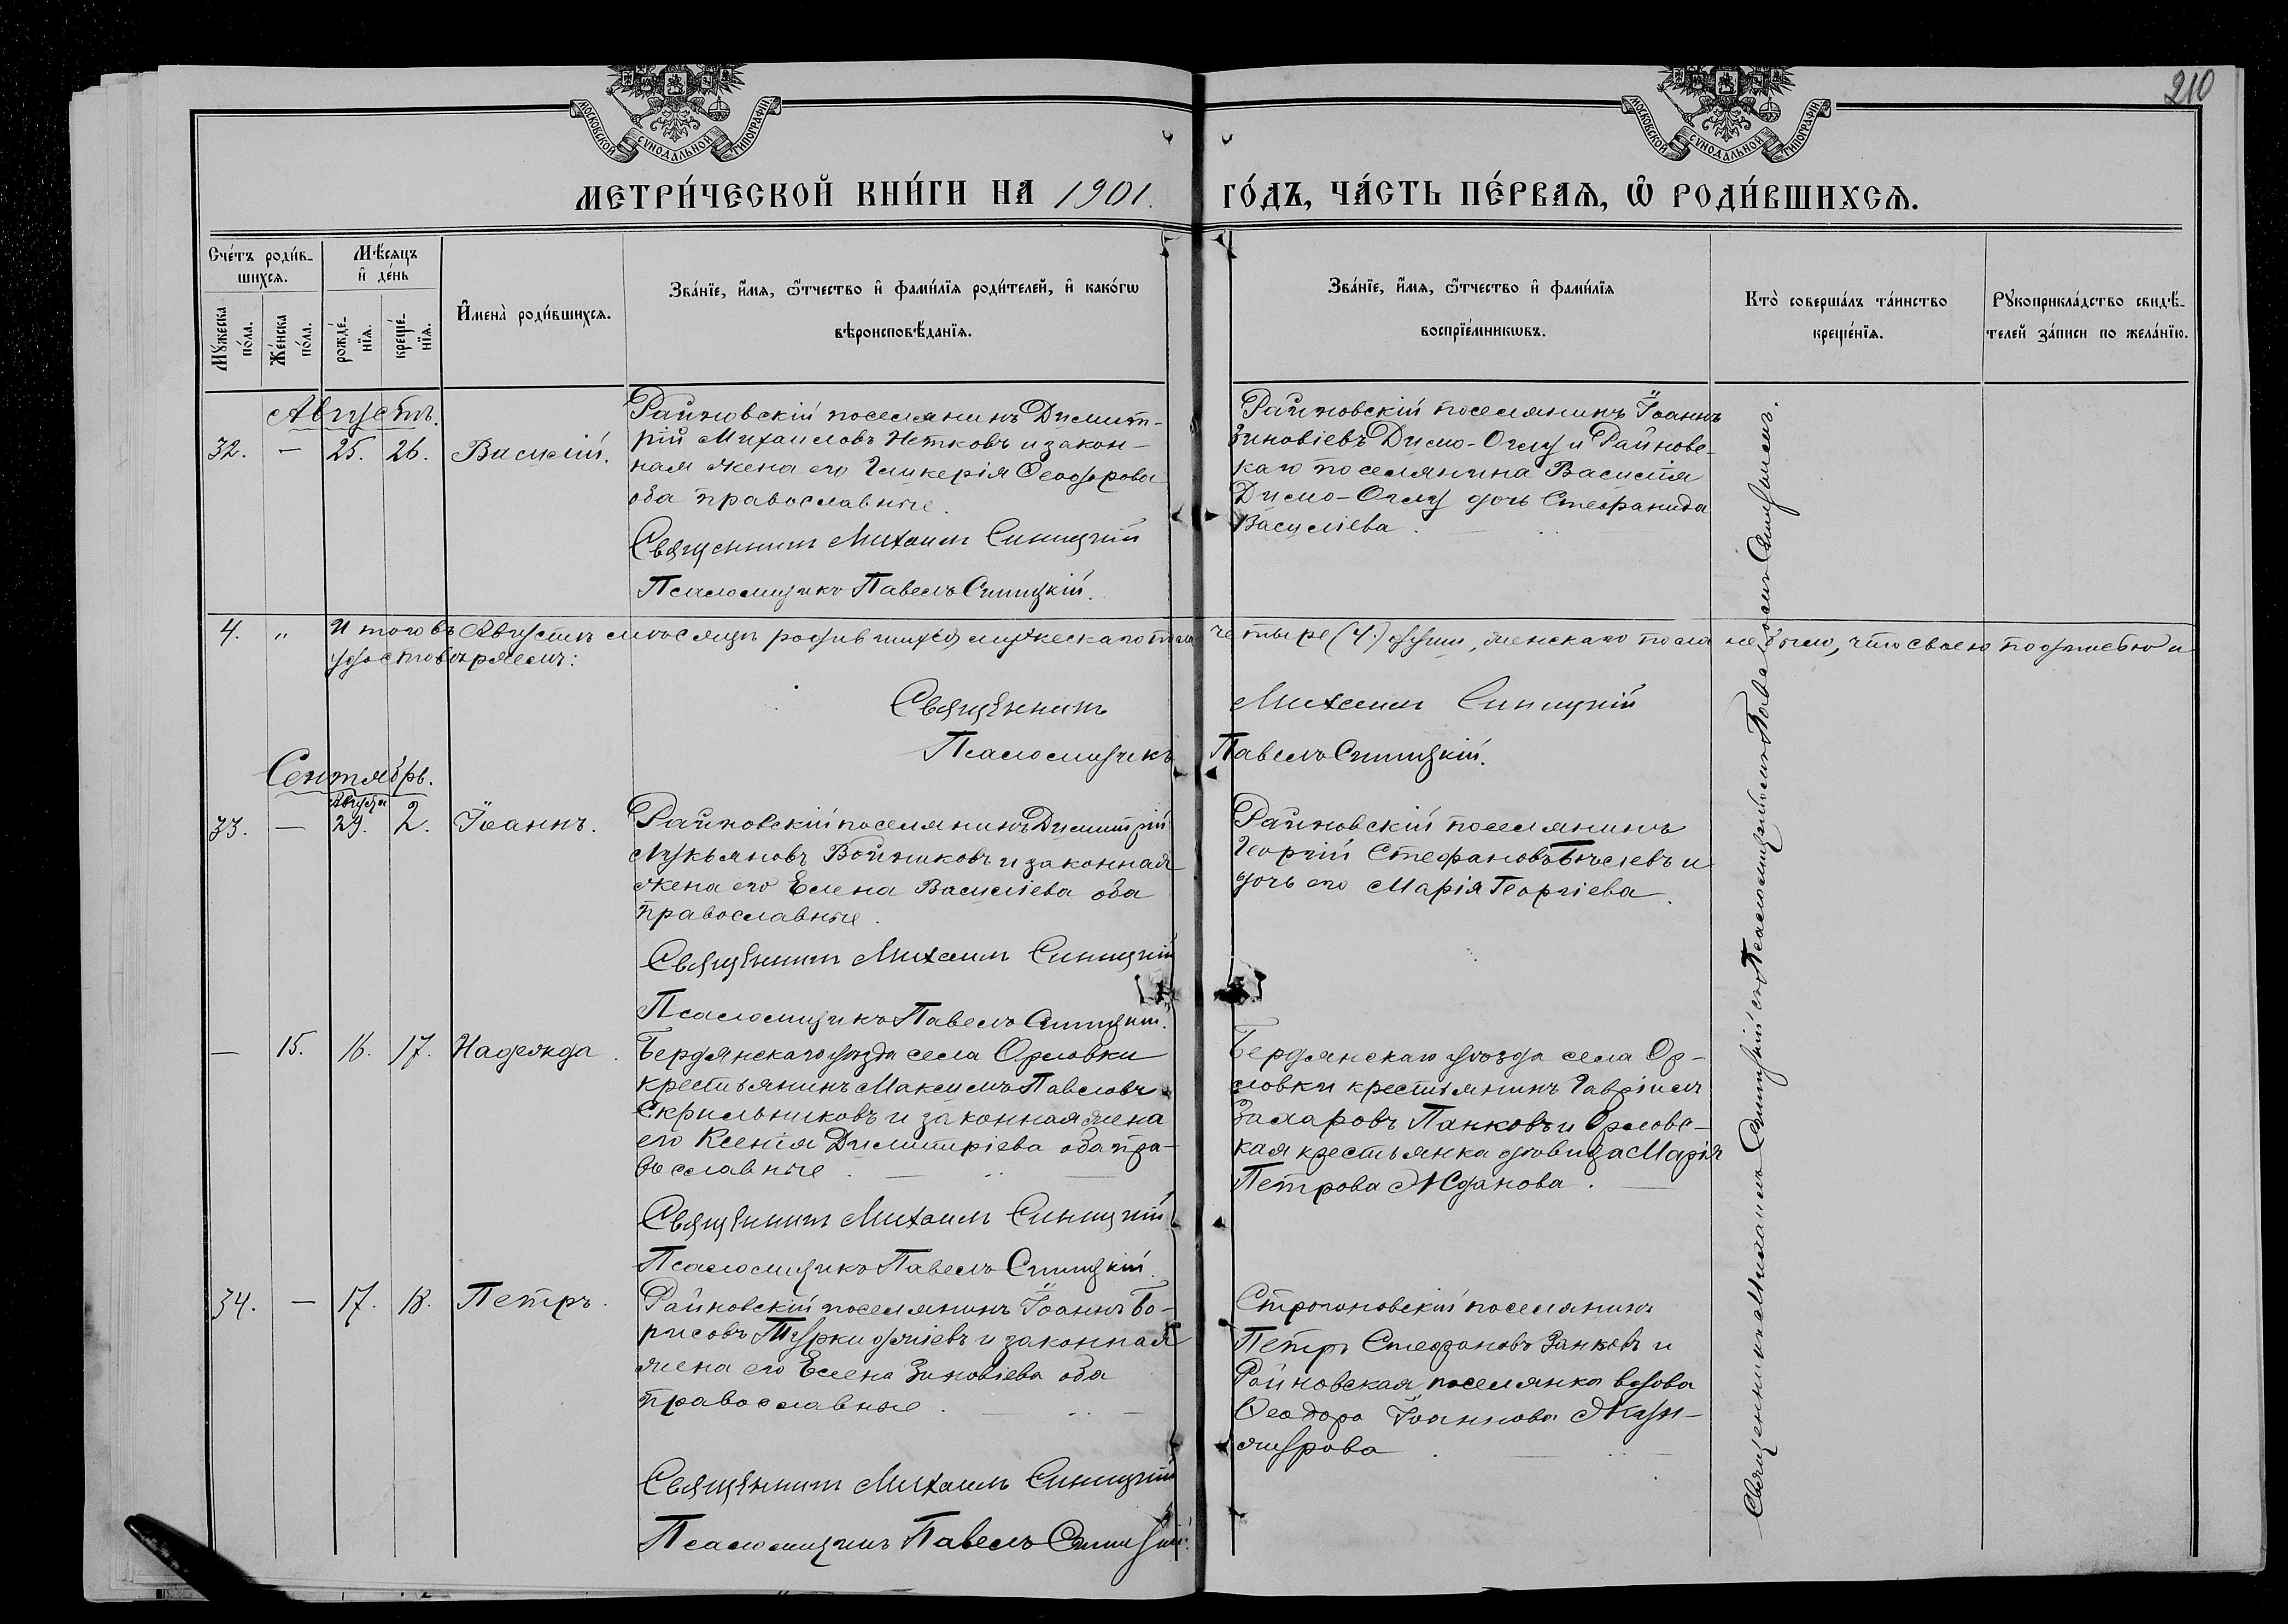 210
МОСКОВСКОЙ СѴНОДАЛЬНОЙ ТИПОГРАФІИ
МОСКОВСКОЙ СѴНОДАЛЬНОЙ ТИПОГРАФІИ
МЕТРИ́ЧЕСКОЙ КНИ́ГИ НА 1901. ГО́ДЪ, ЧА́СТЬ ПЕ́РВАѦ, Ѽ РОДИ́ВШИХСѦ.
Сче́тъ роди́в-
шихсѧ.
Мѣ́сѧцъ
и҆ де́нь
Мꙋ́жеска
по́ла.
Же́нска
по́ла.
рожде́-
нїѧ.
креще́-
нїѧ.
И҆мена̀ роди́вшихсѧ.
Зва́нїе, и҆́мѧ, ѻ҆́тчество и҆ фами́лїѧ роди́телей, и҆ како́гѡ
вѣроисповѣ́данїѧ.
Зва́нїе, и҆́мѧ, ѻ҆́тчество и҆ фами́лїѧ
воспрїе́мникѡвъ.
Кто̀ соверша́лъ та́инство
креще́нїѧ.
Рꙋкоприкла́дство свидѣ́-
телей за́писи по жела́нїю.
Августъ.
32. — 25. 26. Василій.
Райновскій поселянинъ Димит-
рій Михаиловъ Нетковъ и закон-
ная жена его Гликерія Ѳеодорова
оба православные.
Священникъ Михаилъ Синицкій
Псаломщикъ Павелъ Синицкій.
Райновскій поселянинъ Іоаннъ
Зиновіевъ Димо-Оглу и Райновс-
каго поселянина Василія
Димо-Оглу дочь Стефанида
Василіева.
4. „ Итого въ Августѣ мѣсяцѣ родившихся мужескаго пола четыре (4.) души, женскаго пола не было, что своею подписью и
удостовѣряемъ:
Священникъ Михаилъ Синицкій
Псаломщикъ Павелъ Синицкій.
Сентябрь.
Августа
33. — 29. 2. Іоаннъ.
Райновскій поселянинъ Димитрій
Лукьяновъ Войниковъ и законная
жена его Елена Василіева оба
православные.
Священникъ Михаилъ Синицкій
Псаломщикъ Павелъ Синицкій.
Райновскій поселянинъ
Георгій Стефановъ и
дочь его Марія Георгіева.
— 15. 16. 17. Надежда.
Бердянскаго уѣзда села Орловки
крестьянинъ Максимъ Павловъ
Скрильниковъ и законная жена
его Ксенія Димитріева оба пра-
вославные.
Священникъ Михаилъ Синицкій
Псаломщикъ Павелъ Синицкій.
Бердянскаго уѣзда села Ор-
ловки крестьянинъ Гавріилъ
Захаровъ Панковъ и Орловс-
кая крестьянка дѣвица Марія
Петрова Жданова.
34. — 17. 18. Петръ.
Райновскій поселянинъ Іоаннъ Бо-
рисовъ Туркиджіевъ и законная
жена его Елена Зиновіева оба
православные.
Священникъ Михаилъ Синицкій
Псаломщикъ Павелъ Синицкій.
Строгоновскій поселянинъ
Петръ Стефановъ Занковъ и
Райновская поселянка вдова
Ѳеодора Іоаннова
Священникъ Михаилъ Синицкій съ Псаломщикомъ Павломъ Синицкимъ.